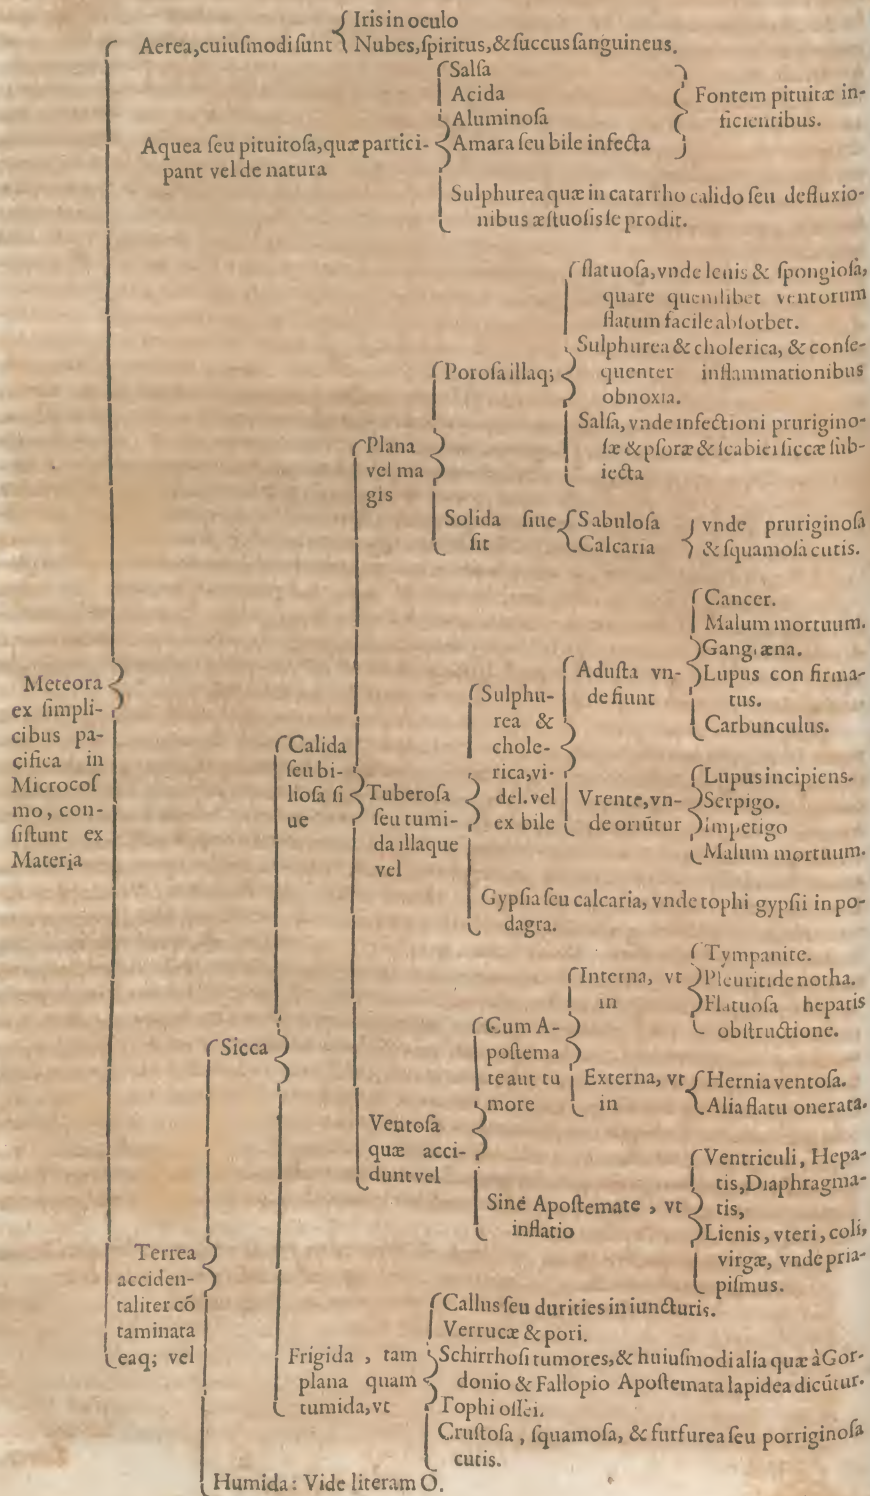 Iris in oculo
Aerea, cuiuſmodi ſunt
Nubes, ſpiritus, & ſuccus ſanguineus.
Aquea ſeu pituitoſa, quæ partici-
pant vel de natura
Salſa
Acida
Aluminoſa
Amara ſeu bile infecta
Fontem pituitæ in-
ficientibus.
Sulphurea quæ in catarrho calido ſeu defluxio-
nibus æſtuoſis ſe prodit.
Meteora
ex ſimpli-
cibus pa-
cifica in
Microcoſ
mo, con-
ſiſtunt ex
Materia
Terrea
acciden-
taliter cō
taminata
eaq; vel
Sicca
Calida
ſeu bi-
lioſa ſi
ue
Plana
vel ma
gis
Poroſa illaq;
flatuoſa, vnde leuis & ſpongioſa,
quare quemlibet ventorum
flatum facile abſorbet.
Sulphurea & cholerica, & conſe-
quenter inflammationibus
obnoxia.
Salſa, vnde infectioni prurigino-
ſæ & pſoræ & ſcabiei ſiccæ ſub-
iecta
Solida ſiue
ſit
Sabuloſa
Calcaria
vnde pruriginoſa
& ſquamoſa cutis.
Tuberoſa
ſeu tumi-
da illaque
vel
Sulphu-
rea &
chole-
rica, vi-
del. vel
ex bile
Aduſta vn-
de fiunt
Cancer.
Malum mortuum.
Gangræna.
Lupus con firma-
tus.
Carbunculus.
Vrente, vn-
de oriūtur
Lupus incipiens.
Serpigo.
Impetigo
Malum mortuum.
Gypſia ſeu calcaria, vnde tophi gypſii in po-
dagra.
Ventoſa
quæ acci-
dunt vel
Cum A-
poſtema
te aut tu
more
Interna, vt
in
Tympanite.
Pleuritide notha.
Flatuoſa hepatis
obſtructione.
Externa, vt
in
Hernia ventoſa.
Alia flatu onerata.
Siné Apoſtemate, vt
inflatio
Ventriculi, Hepa-
tis, Diaphragma-
tis,
Lienis, vteri, coli,
virgæ, vnde pria-
piſmus.
Frigida, tam
plana quam
tumida, vt
Callus ſeu durities in iuncturis.
Verrucæ & pori.
Schirrhoſi tumores, & huiuſmodi alia quæ à Gor-
donio & Fallopio Apoſtemata lapidea dicūtur.
Tophi oſſei.
Cruſtoſa, ſquamoſa, & furfurea ſeu porriginoſa
cutis.
Humida: Vide literam O.